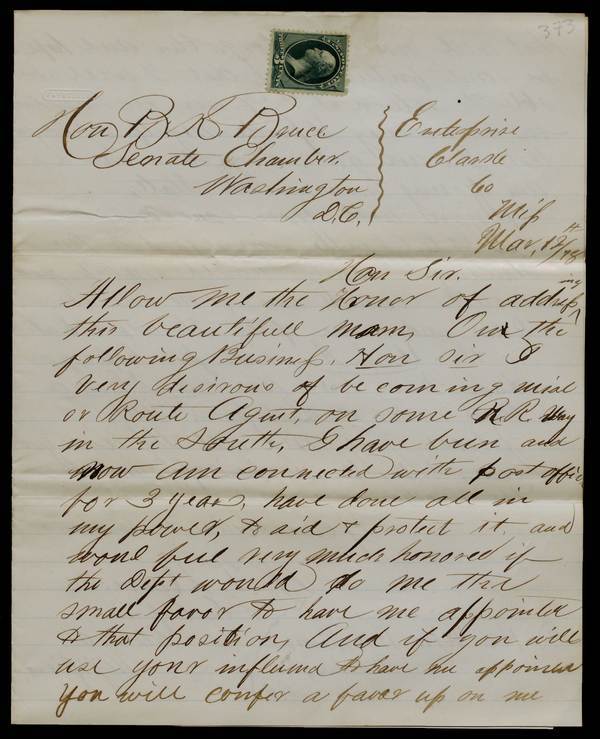 373
Hon B K Bruce
Senate Chamber.
Washington
D.C.
Enterprise
Clarke
Co
Miss
Mar, 12th/78
Hon Sir.
Allow me the Honor of addressing
this beautifull morn, On the
following Business, Hon Sir I
very desirous of be coming mail
or Route Agent, on some R.R. way
in the South, I have been and
now am connected with post office
for 3 years, have done all in
my power, to aid & protect it and
would feel very much honored if
the Dept would do me the
small favor to have me appointed
to that position, And if you will
use your influence to have me appointed
You will confer a favor up on me